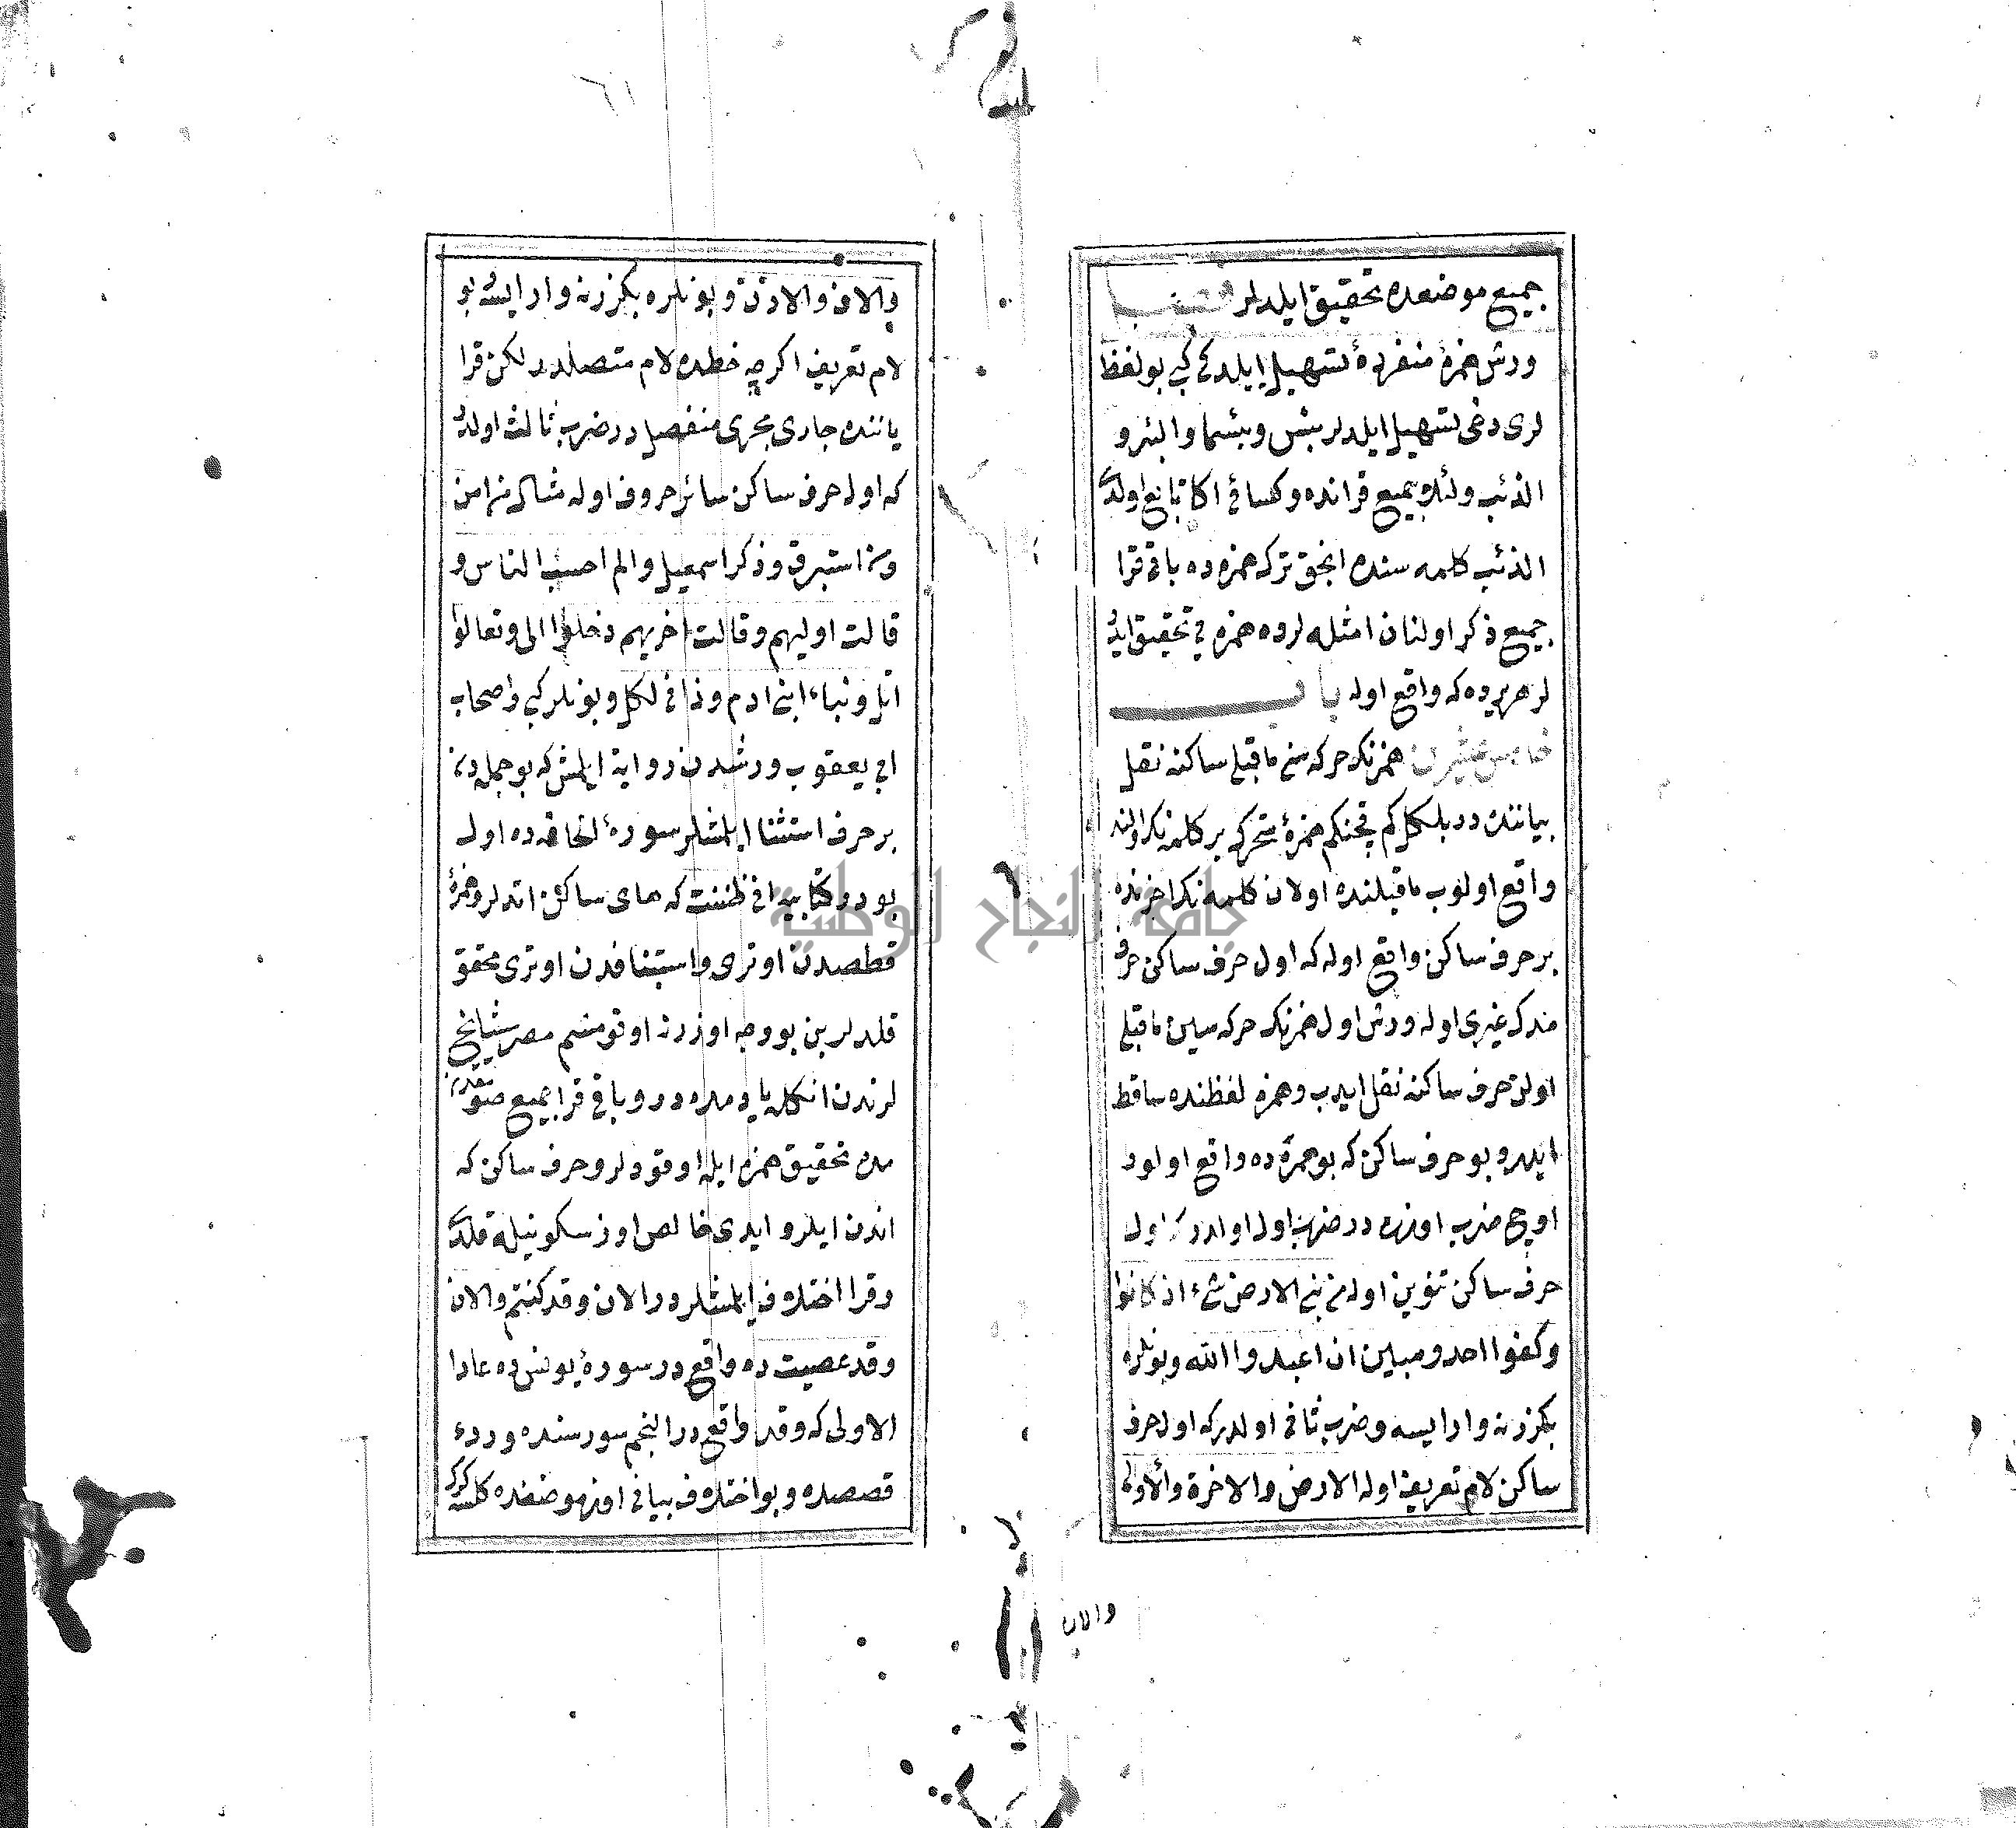 جميع موضعده تحقيق ايلدلر
ورش همزهٔ منفردهٔ تسهيل ايلدكى كبى بو لفظ
لرى دخى تسهيل ايلدلر بئس وبئسما والبئر و
الذئب ولئلا جميع قرانده وكسائى اكا تابع اولدى
الذئب كلمه سنده انجق ترك همزه ده باقى قرا
جميع ذكر اولنان امثله لرده همزه يى تحقيق ايد
لر هر يرده كه واقع اوله باب
خامس عشرين همزنك حركه سنى ما قبلى ساكنه نقل
بياننده در بلكل كم قچنكم همزهٔ متحركه بر كلمه نك اولنده
واقع اولوب ما قبلنده اولان كلمه نك اخرنده
بر حرف ساكن واقع اوله كه اول حرف ساكن حرف
مدك غيرى اوله ورش اول همزنك حركه سين ما قبلى
اولن حرف ساكنه نقل ايدب وهمزه لفظنده ساقط
ايدر وبو حرف ساكن كه بو همزه ده واقع اولود
اوچ ضرب اوزره در ضرب اول اولدر كه اول
حرف ساكن تنوين اوله من نبى الارض شىء اذ كانوا
وكفوا احد ومبين ان اعبدوا الله وبونلره
بكزر نه وار ايسه وضرب ثانى اولدر كه اول حرف
ساكن لام تعريف اوله الارض والاخرة والاولى
والان
والان والاذن وبونلره بكزر نه وار ايسه بو
لام تعريف اكرچه خطده لام متصلدر لكن قرا
ياننده جارى مجرى منفصل در ضرب ثالث اولدر
كه اول حرف ساكن سائر حروف اوله مثالى من امن
ومن استبرق وذكر اسمعيل والم احسب الناس و
قالت اوليهم وقالت اخريهم دخلوا الى وتعالوا
اتل ونباء ابنى ادم وذاتى لكل وبونلر كبى واصحاب
ابى يعقوب ورشدن رواية ايلمش كه بو جمله دن
بر حرف استثنا ايلمشلر سورهٔ الحاقه ده اول
بودر كتابيه انى ظننت كه هاى ساكن اتدلر وهمزهٔ
قطعدن اوترى واستينافدن اوترى محقق
قلدلر بن بو وجه اوزرنه اوقومشم مصر مشايخ
لرندن انكله يا دمده در وباقى قرا جميع
مدن تحقيق همزه ايله اوقودلر وحرف ساكن كه
اندن ايلرو ايدى خالص اوز سكونيله قلدى
وقرا اختلاف ايلمشلر در الان وقد كنتم والان
وقد عصيت ده واقع در سورهٔ يونس ده عادا
الاولى كه وقد واقع در النجم سورسنده وردء
قصصده وبو اختلاف بيانى اوز موضعنده كلسه كرك